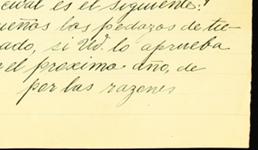 cual es el siguiente:
ueños los pedazos de tie
ado, si Ud. lo aprueba
el proximo año, de
por las razones